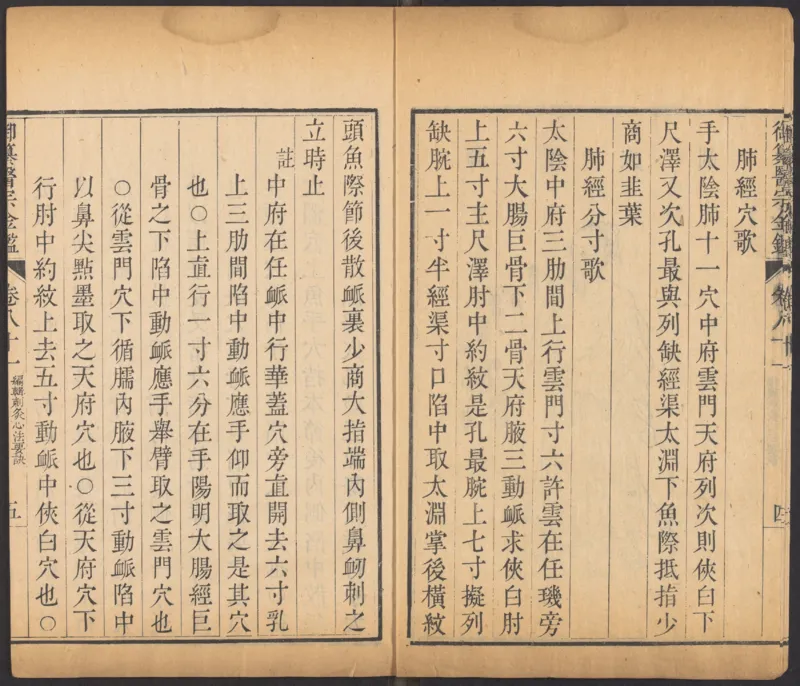 御纂醫宗金鑑 卷八十一 四
肺經穴歌
手太陰肺十一穴中府雲門天府列次則俠白下
尺澤又次孔最與列缺經渠太淵下魚際抵指少
商如韭葉
肺經分寸歌
太陰中府三肋間上行雲門寸六許雲在任璣旁
六寸大腸巨骨下二骨天府腋三動䘑求俠白肘
上五寸主尺澤肘中約紋是孔最腕上七寸擬列
缺腕上一寸半經渠寸口陷中取太淵掌後橫紋
頭魚際節後散䘑裏少商大指端內側鼻衂刺之
立時止
註中府在任䘑中行華蓋穴旁直開去六寸乳
上三肋間陷中動䘑應手仰而取之是其穴
也○上直行一寸六分在手陽明大腸經巨
骨之下陷中動䘑應手舉臂取之雲門穴也
○從雲門穴下循臑內腋下三寸動䘑陷中
以鼻尖點墨取之天府穴也○從天府穴下
行肘中約紋上去五寸動䘑中俠白穴也○
御纂醫宗金鑑 卷八十一 編輯刺灸心法要訣 五